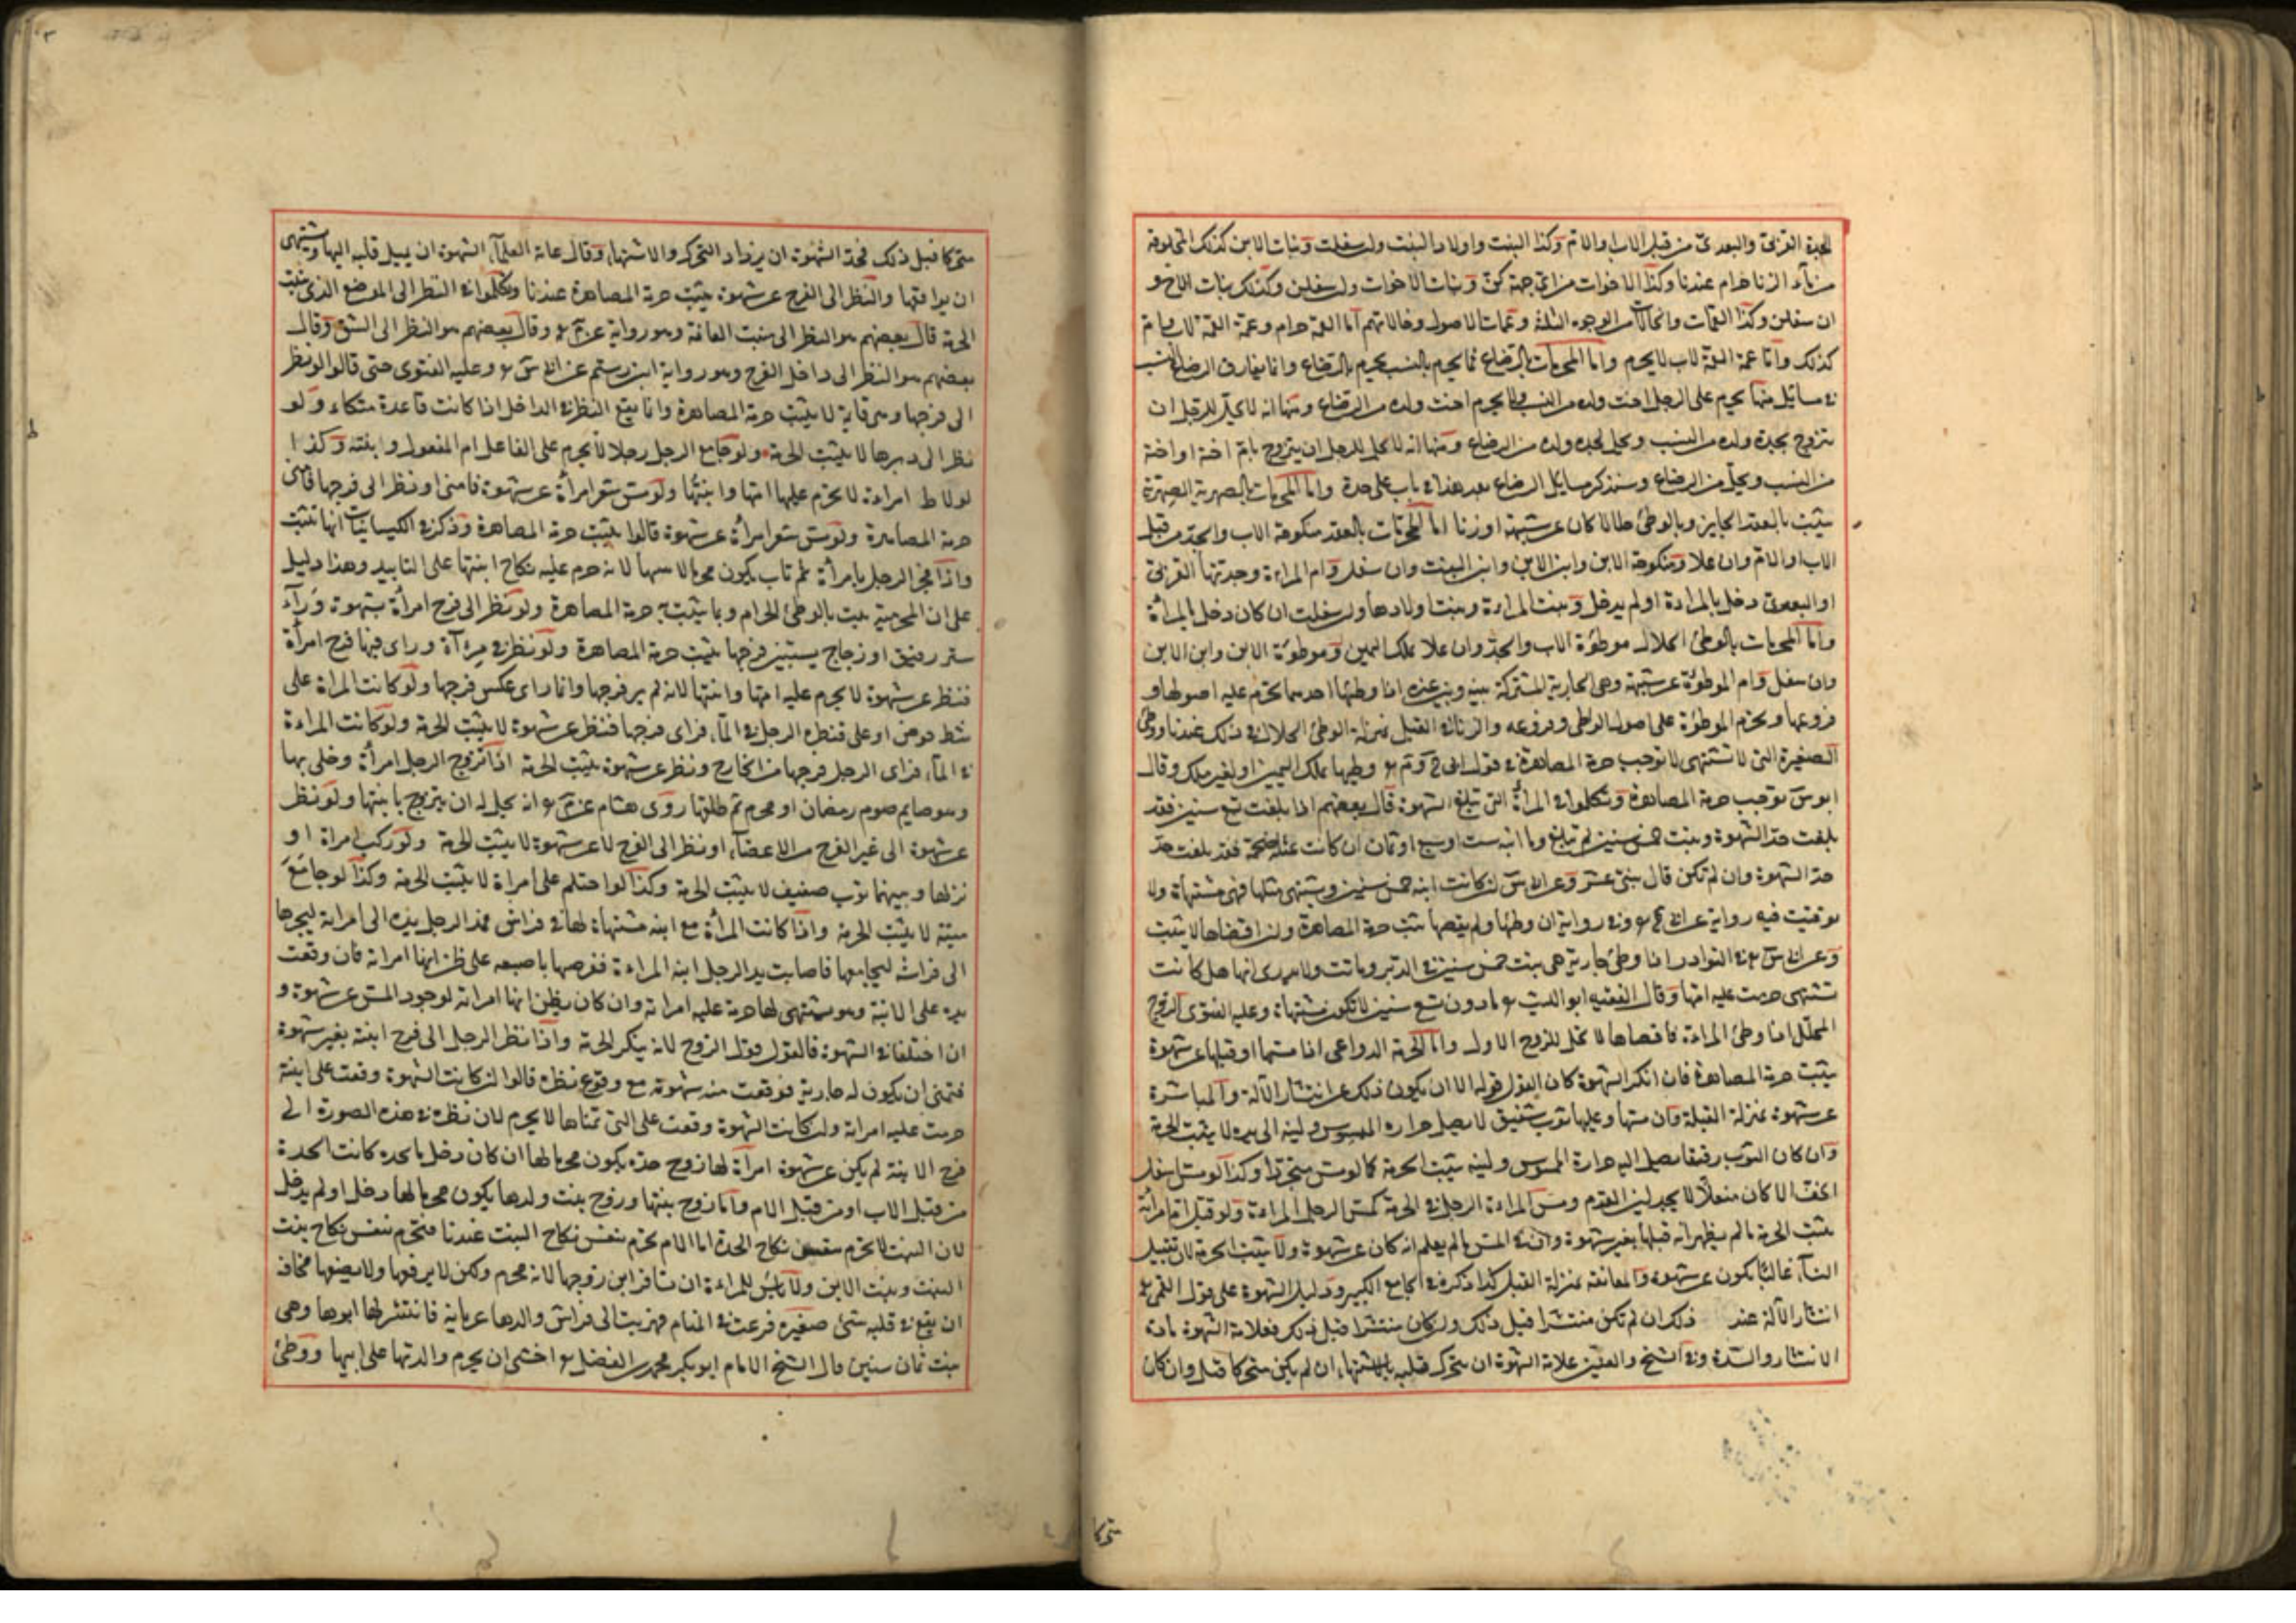 الجدة القربى والبعدى من قبل الاب او الام وكذا البنت واولاد البنت وان سفلت وبنات الابن كذلك المخلوقة
من ماء الزنا حرام عندنا وكذا الاخوات من اى جهة كن وبنات الاخوات وان سفلن وكذلك بنات الاخ و
ان سفلن وكذا العمات والخالات من الوجوه الثلثة وعمات الاصول وخالاتهم اما العمة حرام وعمة العمة لاب وام
كذلك واما عمة العمة لاب لا يحرم واما المحرمات بالرضاع فما يحرم بالنسب يحرم بالرضاع وانما يفارق الرضاع النسب
فى مسائل منها يحرم على الرجل اخت ولده من النسب ولا يحرم اخت ولده من الرضاع ومنها انه لا يحل للرجل ان
يتزوج بجدة ولده من النسب ويحل بجدة ولده من الرضاع ومنها انه لا يحل للرجل ان يتزوج بام اخته او اخيه
من النسب ويحل من الرضاع وسنذكر مسائل الرضاع بعد هذا فى باب على حدة واما المحرمات بالصهرية الصهرية
يثبت بالعقد الجايز وبالوطئ حلالا كان عن شبهة او زنا اما المحرمات بالعقد منكوحة الاب والجد من قبل
الاب او الام وان علا ومنكوحة الابن وابن الابن وابن البنت وان سفل وام المراءة وجدتها القربى
او البعدى دخل بالمراءة او لم يدخل وبنت المراءة وبنت اولادها وان سفلت ان كان دخل بالمرأة
واما المحرمات بالوطئ الحلال موطوءة الاب والجد وان علا بملك اليمين وموطوءة الابن وابن الابن
وان سفل وام الموطوءة عن شبهة وهى الجارية المشتركة بينه وبين غيره اذا وطئها احدهما تحرم عليه اصولها و
فروعها ويحرم الموطوءة على اصول الواطى وفروعه والزنا فى القبل بمنزلة الوطئ الحلال فى ذلك عندنا ووطئ
الصغيرة التى لا تشتهى لا توجب حرمة المصاهرة فى قول ابى ح وم وطيها بملك اليمين او بغير ملك وقال
ابو س توجب حرمة المصاهرة وتكلموا فى المرأة التى تبلغ الشهوة قال بعضهم اذا بلغت تسع سنين فقد
بلغت حد الشهوة وبنت خمس سنين لم تبلغ واما ابنة ست او سبع او ثمان ان كانت عبلة ضخمة فقد بلغت حد
حد الشهوة وان لم تكن قال بنتى عشر وعن ابى س ان كانت ابنة خمس سنين ويشتهى مثلها فهى مشتهاة ولا
توقيت فيه رواية عن ابى ح وفى رواية ان وطئها ولم يفضها يثبت حرمة المصاهرة وان افضاها لا يثبت
وعن ابى س فى النوادر اذا وطئ جارية هى بنت خمس سنين فى الدبر وماتت ولا يدرى انها هل كانت
تشتهى حرمت عليه امها وقال الفقيه ابو الليث ما دون تسع سنين لا تكون مشتهاة وعليه الفتوى الزوج
المحلل اذا وطئ المراءة فافضاها لا تحل للزوج الاول واما الحرمة الدواعى اذا مسها او قبلها عن شهوة
يثبت حرمة المصاهرة فان انكر الشهوة كان القول قوله الا ان يكون ذلك عن انتشار الآلة والمباشرة
عن شهوة بمنزلة القبلة وان مسها وعليها ثوب صفيق لا يصل حرارة الممسوس ولينه الى يده لا يثبت الحرمة
وان كان الثوب رفيقا يصل اليه حرارة الممسوس ولينه يثبت الحرمة كما لو مس متجردا وكذا لو مس اسفل
الخف الا كان منعلا لا يجد لين القدم ومس المراءة الرجل فى الحرمة كمس الرجل المراءة ولو قبل ام امرأته
يثبت الحرمة ما لم يظهر انه قبلها بغير شهوة وان فى المس ما لم يعلم انه كان عن شهوة ولا يثبت الحرمة لان تقبيل
النساء غالبا يكون عن شهوة والمعانقة بمنزلة القبل كذا ذكره فى الجامع الكبير ودليل الشهوة على قول القمى
انتشار الآلة عند ذلك ان لم تكن منتشرا قبل ذلك وان كان منتشرا قبل ذلك فعلامة الشهوة زيادة
الانتشار والشدة وفى الشيخ والعنين علامة الشهوة ان يتحرك قلبه بالاشتهاء ان لم يكن متحركا قبل وان كان
متحركا
متحركا قبل ذلك فحد الشهوة ان يزداد التحرك والاشتهاء وقال عامة العلماء الشهوة ان يميل قلبه اليها ويشتهى
ان يواقعها والنظر الى الفرج عن شهوة يثبت حرمة المصاهرة عندنا وتكلموا فى النظر الى الموضع الذى يثبت
الحرمة قال بعضهم هو النظر الى منبت العانة وهو رواية عن م وقال بعضهم هو النظر الى الشق وقال
بعضهم هو النظر الى داخل الفرج وهو رواية ابن رستم عن ابى س وعليه الفتوى حتى قالوا لو نظر
الى فرجها وهى قائمة لا يثبت حرمة المصاهرة وانما يقع النظر فى الداخل اذا كانت قاعدة متكاءة ولو
نظر الى دبرها لا يثبت الحرمة ولو جامع الرجل رجلا لا يحرم على الفاعل ام المفعول وابنته وكذا
لو لاط امراءة لا يحرم عليها امها وابنتها ولو مس شعر امرأة عن شهوة فامنى او نظر الى فرجها فامنى
حرمة المصاهرة ولو مس شعر امرأة عن شهوة قالوا يثبت حرمة المصاهرة وذكر فى الكيسانيات انها تثبت
واذا فجر الرجل بامرأة ثم تاب يكون محرما لابنتها لانه حرم عليه نكاح ابنتها على التابيد وهذا دليل
على ان المحرمية يثبت بالوطئ الحرام وبما يثبت به حرمة المصاهرة ولو نظر الى فرج امرأة بشهوة وراء
ستر رفيق او زجاج يستبين فرجها يثبت حرمة المصاهرة ولو نظر فى مرءآة وراى فيها فرج امرأة
فنظر عن شهوة لا يحرم عليه امها وابنتها لانه لم ير فرجها وانما راى عكس فرجها ولو كانت المراة على
شط حوض او على قنطرة الرجل فى الماء فراى فرجها فنظر عن شهوة لا يثبت الحرمة ولو كانت المراءة
فى الماء فراى الرجل فرجها من الخارج ونظر عن شهوة يثبت الحرمة اذا تزوج الرجل امرأة وخلى بها
وهو صايم صوم رمضان او محرم ثم طلقها روى هشام عن م انه يحل له ان يتزوج بابنتها ولو نظر
عن شهوة الى غير الفرج من الاعضاء او نظر الى الفرج لا عن شهوة لا يثبت الحرمة ولو ركب امراة او
نزلها وبينهما ثوب صفيف لا يثبت الحرمة وكذا لو احتلم على امراة لا يثبت الحرمة وكذا لو جامع
ميتة لا يثبت الحرمة واذا كانت المرأة مع ابنة مشتهاة لها فى فراش فمد الرجل يده الى امراته ليجرها
الى فراشه ليجامعها فاصابت يد الرجل ابنة المراءة فقرصها باصبعه على ظن انها امراته فان وقعت
يده على الابنة وهو يشتهى لها حرمة عليه امراته وان كان يظن انها امراته لوجود المس عن شهوة و
ان اختلفا فى الشهوة فالقول قول الزوج لانه ينكر الحرمة واذا نظر الرجل الى فرج ابنته بغير شهوة
فتمنى ان يكون له جارية فوقعت منه شهوة مع وقوع نظره قالوا ان كانت الشهوة وقعت على ابنته
حرمت عليه امراته وان كانت الشهوة وقعت على التى تمناها لا يحرم لان نظره فى هذه الصورة الى
فرج الابنة لم يكن عن شهوة امرأة لها زوج جدة يكون محرما لها ان كان دخل بالجدة كانت الجدة
من قبل الاب او من قبل الام واما زوج بنتها وزوج بنت ولدها يكون محرما لها دخل او لم يدخل
لان البنت لا تحرم بنفس نكاح الجدة اما الام تحرم بنفس نكاح البنت عندنا فتحرم بنفس نكاح بنت
البنت وبنت الابن ولا باس للمراءة ان تسافر ابن زوجها لانه محرم ولكن لا يرفعها ولا يضعها مخافة
ان يقع فى قلبه شئ صغيرة فزعت فى المنام فهربت الى فراش والدها عريانة فانتشر لها ابوها وهى
بنت ثمان سنين قال الشيخ الامام ابو بكر محمد بن الفضل اخشى ان يحرم والدتها على ابيها ووطئ